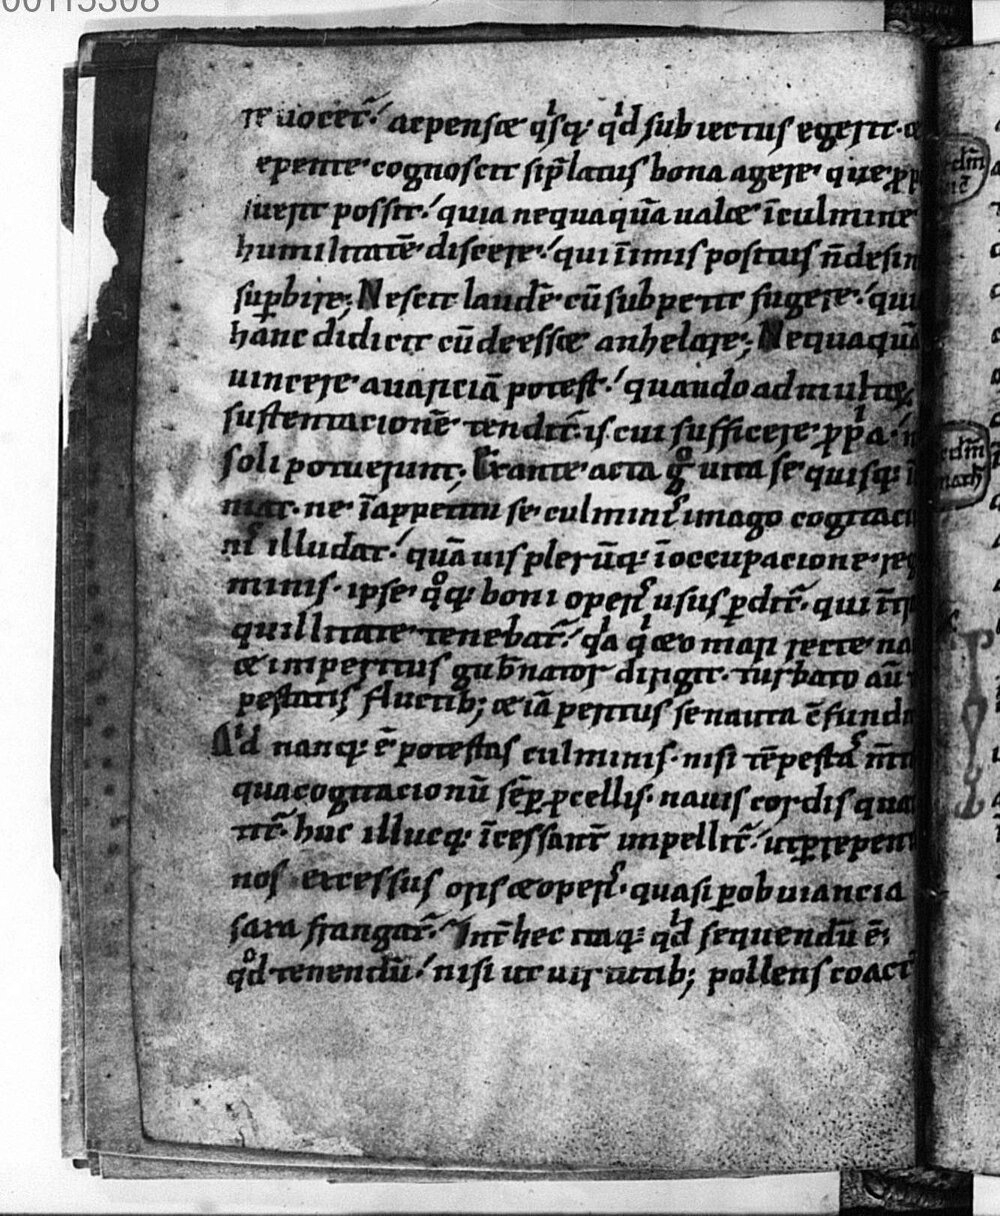 00115308
te uocet̃. aepensæ qͥsq; qͥd subiectus egerit. &
epente cognoscit si p̃latus bona agere que ꝓp
uerit possit. quia nequaquã ualæ ĩculmine
humilitatẽ discere. qui ĩimis positus ñdesin
suꝑbire; Nescit laudẽ cũ subpetit fugere. qui
hanc didicit cũ deessæ anhelare; Nequaquã
uincere auariciã potest. quando ad multaꝝ
sustentacionẽ tendit̃. is cui sufficere ꝓpͥa
soli potuerunt; Erante acta gͦ uita se quisq; ĩ
niat. ne ĩappetitu se culminis imago cogitaci
nis illudat. quã uis plerũq; ĩoccupacione re
minis. ipse qͦq; boni operis usus ꝑdit̃. qui
quillitate tenebat̃. qͥa qͥæo mari recte na
æ imperitus gub̃nator dirigit. turbato aũ
pestatis fluctib; æ iã peritus se nauta cõfundi
Qͥd nanq; ẽ potestas culminis. nisi tẽpestas m̃ti
qua cogitacionũ sẽꝑ ꝓcellis. nauis cordis qua
tit̃. huc illucq; ĩcessant̃ impellit̃. ut ꝑ repenti
nos excessus oris æ operis. quasi ꝑ obuiancia
saxa frangat̃. Int̃ hec itaq; qͥd sequendũ ẽ;
qͦd tenendũ. nisi ut uirtutib; pollens coact